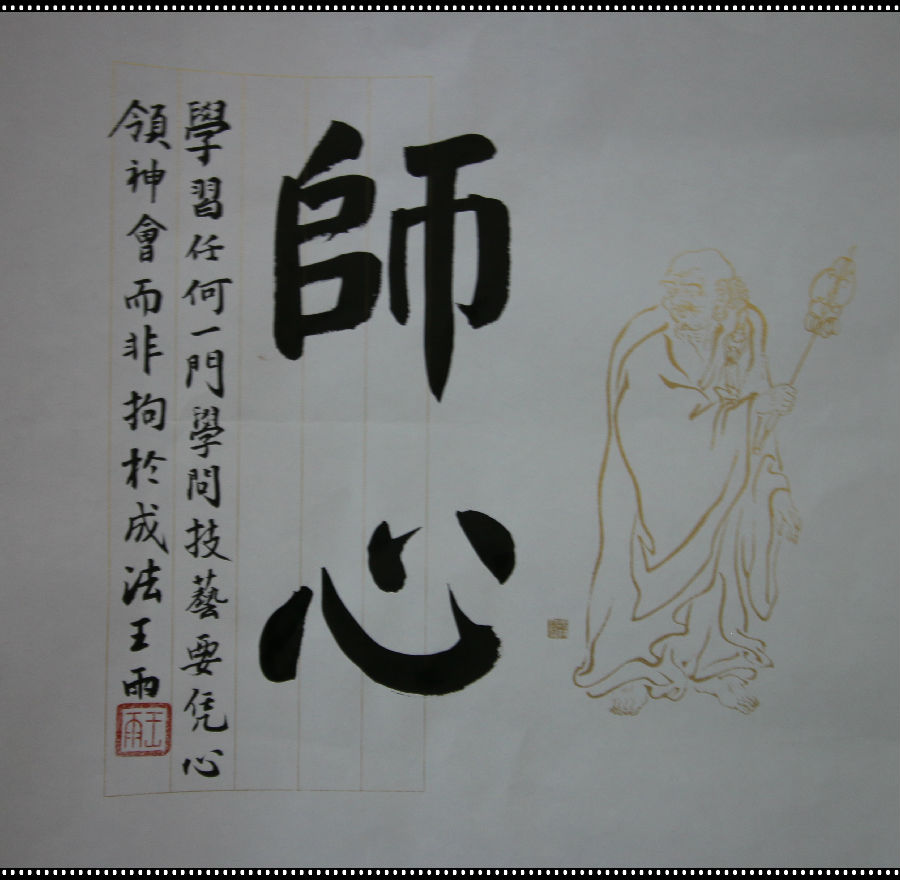 師心
學習任何一門學問技藝要凭心
領神會而非拘於成法王雨
王雨